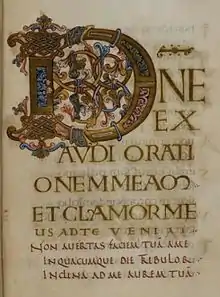 DNE
EX
AUDI ORATI
ONEM MEAM
ET CLAMOR ME
US AD TE VENIAT
NON AVERTAS FACIEM TUĀ A ME
IN QUACUMQUE DIE TRIBULOR
INCLINA AD ME AUREM TUĀ